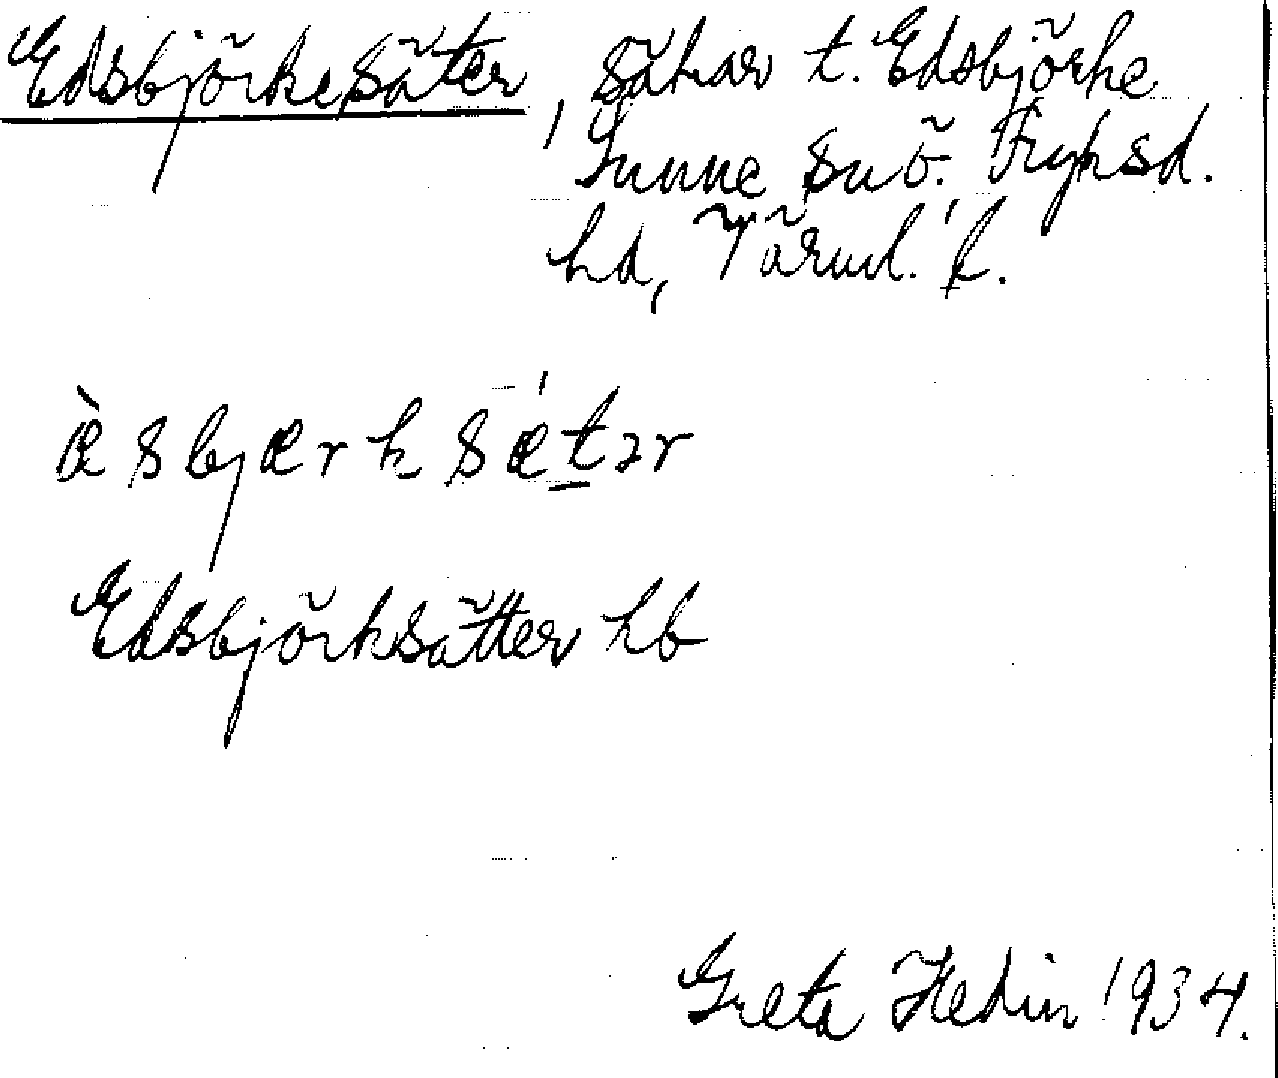 Edsbjörkesäter, säkar t. Edsbjörke
Sunne sn ö. Fryksd.
hd, Värml. l.
æ̀sbjærksǽtər
Edsbjörksätter hb
Greta Hedin 1934.